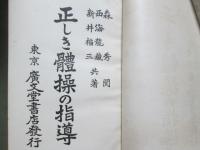 森秀閲
西海龍
新井福三
共著
正しき體操の指導
東京 廣文堂書店發行